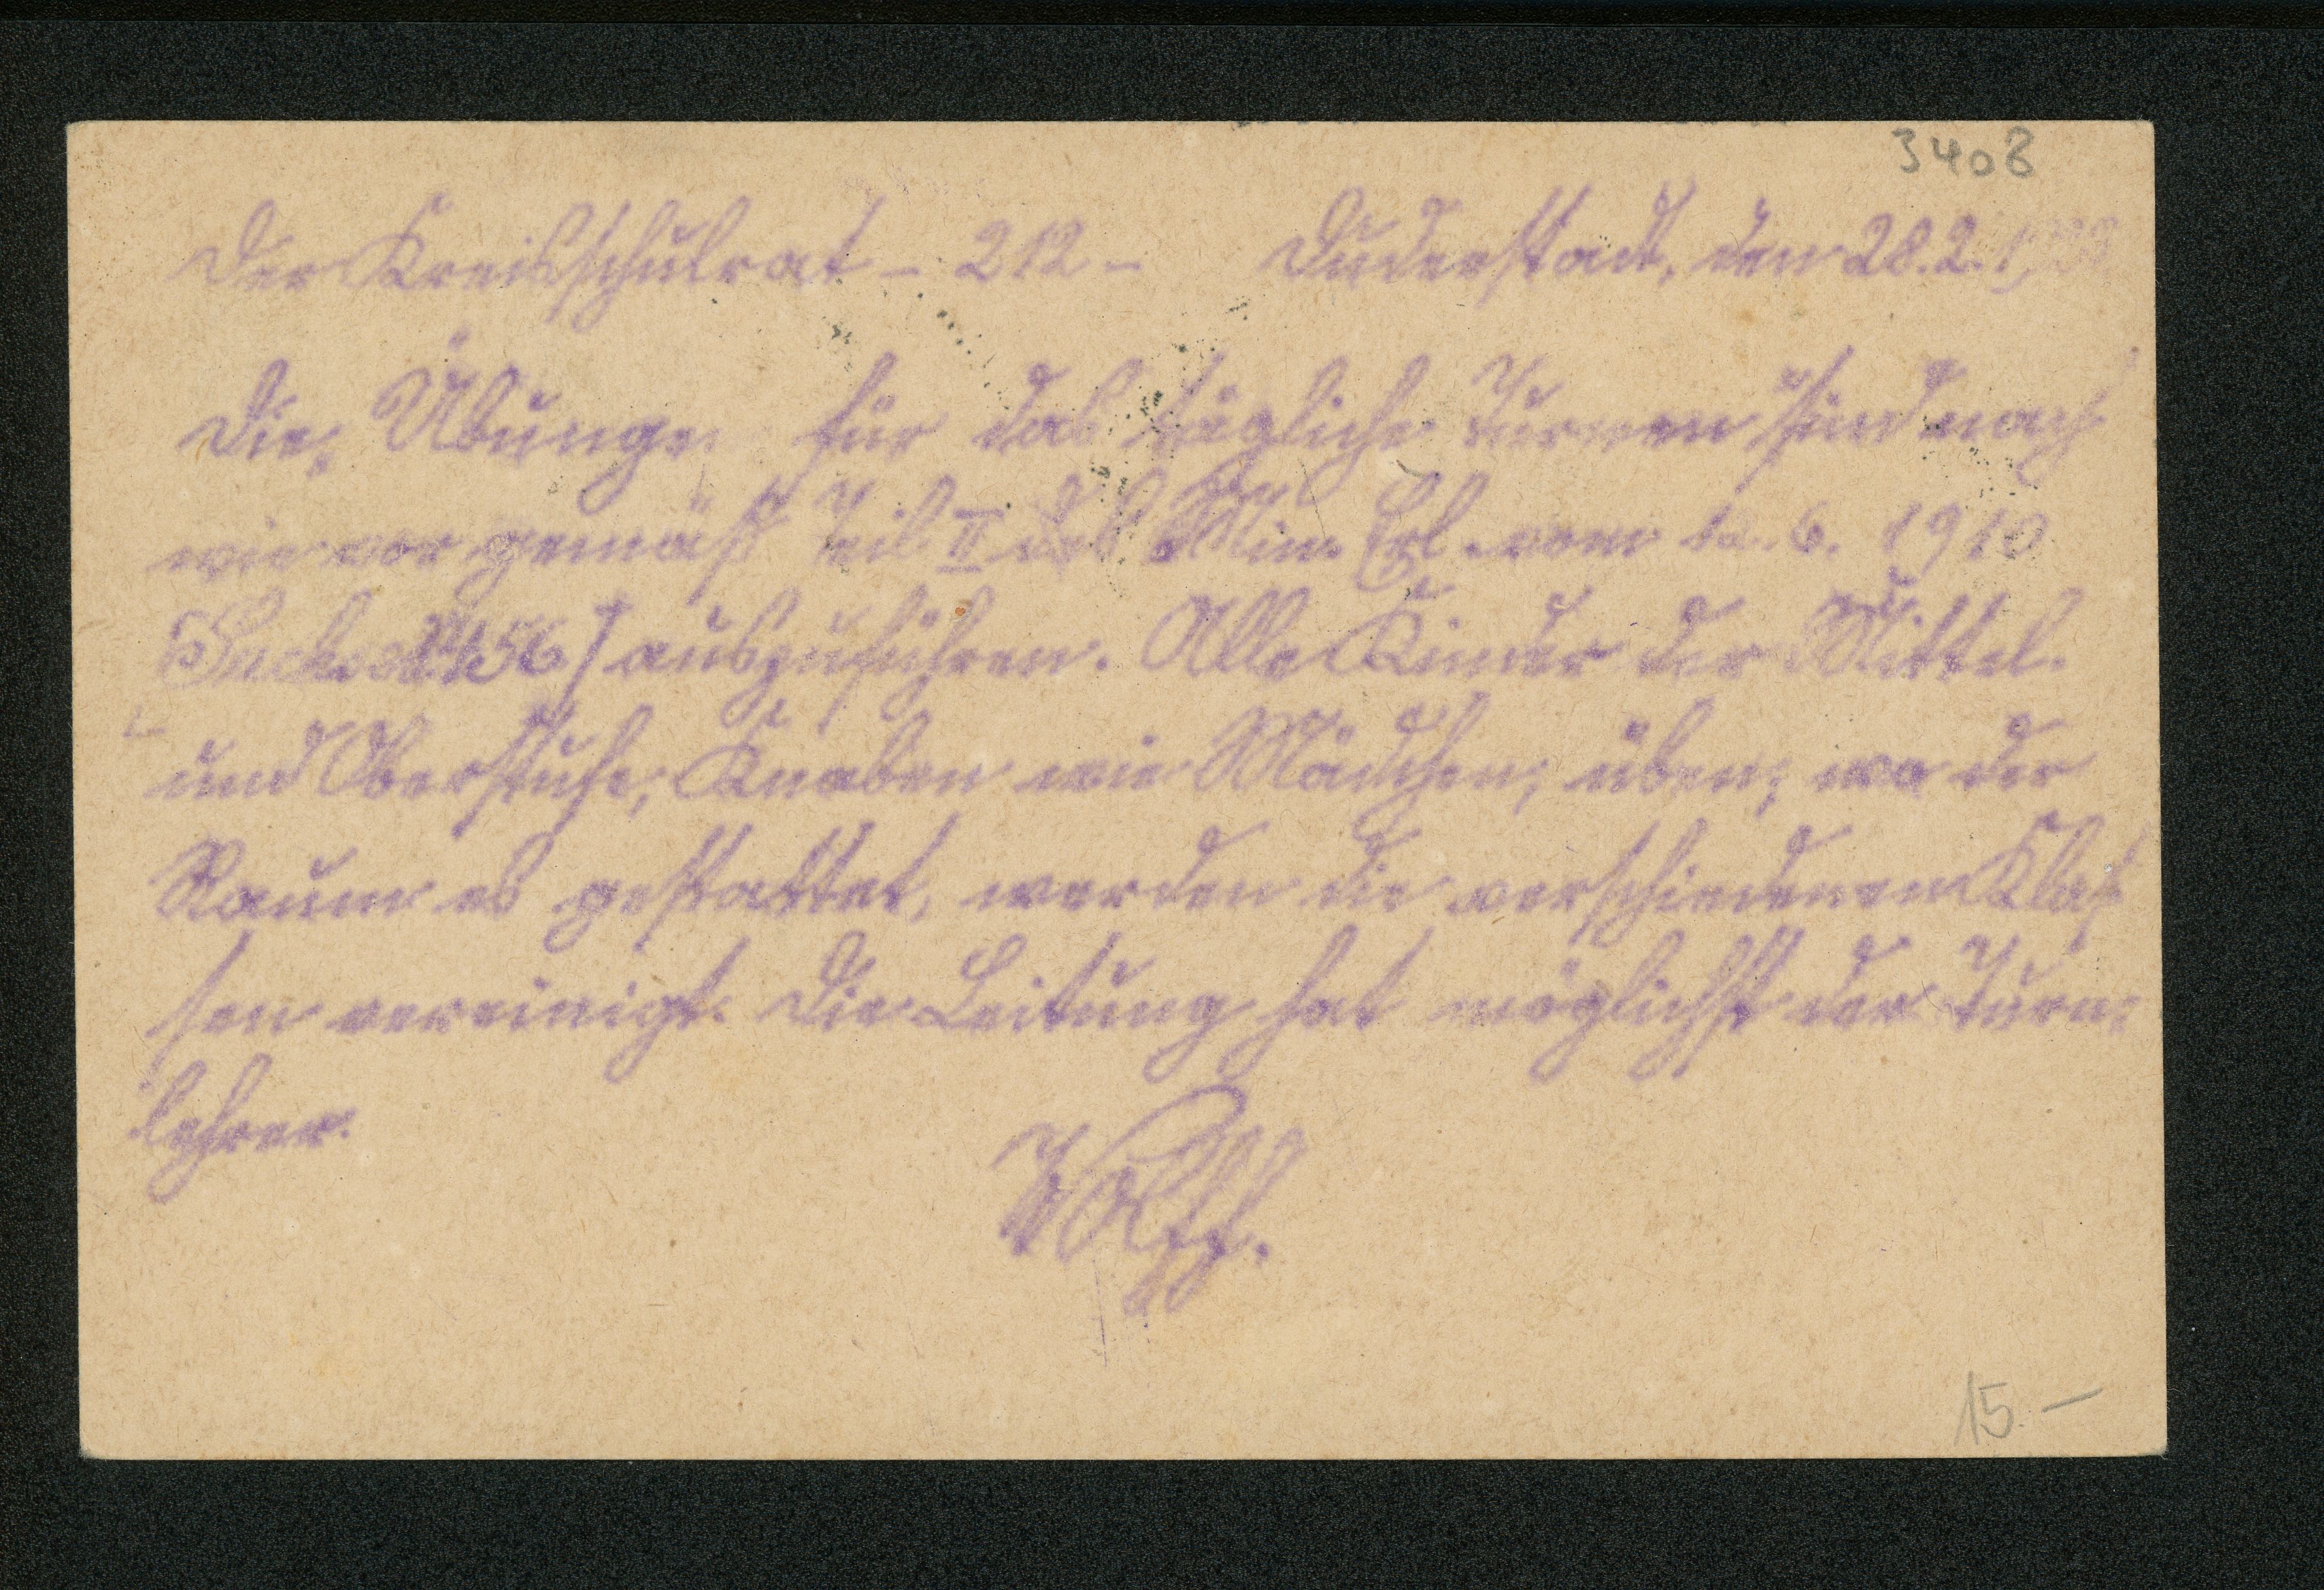 3408
Der Kreisschulrat - 212 - Duderstadt, den 28.2.
Die Übungen für das tägliche Turnen sind nach
wie vor gemäß Teil II des Min. Erl. vom 6. 1910
auszuführen. Alle Kinder der Mittel-
und Oberstufe, Knaben wie Mädchen, üben; wo der
Raum es gestattet, werden die verschiedenen Klas-
sen vereinigt. Die Leitung hat möglichst der Turn-
lehrer.
Wolff.
15.-